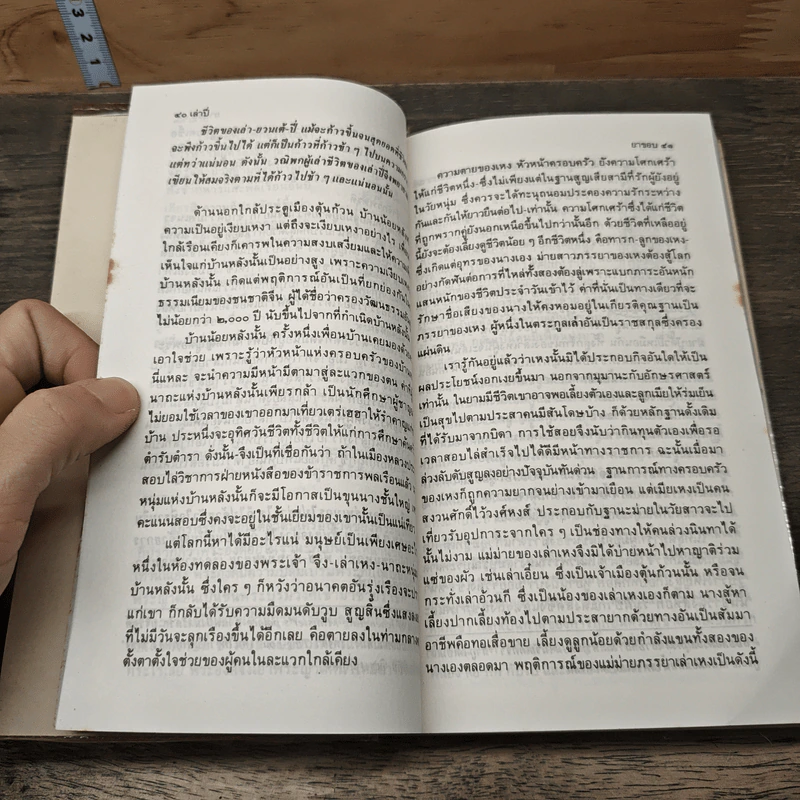 3
2
1
๔๐ เล่าปี่
ชีวิตของเล่า-ยวนเต้-ปี่ แม้จะก้าวขึ้นจนสุดยอดที่
จะพึงก้าวขึ้นไปได้ แต่ก็เป็นก้าวที่ก้าวช้า ๆ ไปบน
แต่ทว่าแน่นอน ดังนั้น วณิพกผู้เล่าชีวิตของเล่าปี่จึง
เขียนให้สมจริงตามที่ได้ก้าวไปช้า ๆ และแน่นอนนั้น
ด้านนอกใกล้ประตูเมืองตุ้นก้วน บ้านน้อยหลัง
ความเป็นอยู่เงียบเหงา แต่ถึงจะเงียบเหงาอย่างไร
ใกล้เรือนเคียงก็เคารพในความสงบเสงี่ยมและให้ความ
เห็นใจแก่บ้านหลังนั้นเป็นอย่างสูง เพราะความเงียบ
บ้านหลังนั้น เกิดแต่พฤติการณ์อันเป็นที่ยกย่องกัน
ธรรมเนียมของชนชาติจีน ผู้ได้ชื่อว่าครองวัฒนธรรม
ไม่น้อยกว่า ๒,๐๐๐ ปี นับขึ้นไปจากที่กำเนิดบ้านหลัง
บ้านน้อยหลังนั้น ครั้งหนึ่งเพื่อนบ้านเคยมองด้วย
เอาใจช่วย เพราะรู้ว่าหัวหน้าแห่งครอบครัวของบ้าน
นี่แหละ จะนำความมีหน้ามีตามาสู่ละแวกของตน
นาถะแห่งบ้านหลังนั้นเพียรกล้า เป็นนักศึกษาผู้
ไม่ยอมใช้เวลาของเขาออกมาเที่ยวเตร่เฮฮาให้รำคาญ
บ้าน ประหนึ่งจะอุทิศวันชีวิตทั้งชีวิตให้แก่การศึกษา
ตำรับตำรา ดังนั้น-จึงเป็นที่เชื่อกันว่า ถ้าในเมืองหลวง
สอบไล่วิชาการฝ่ายหนังสือของข้าราชการพลเรือนแล้ว
หนุ่มแห่งบ้านหลังนั้นก็จะมีโอกาสเป็นขุนนางชั้นใหญ่
คะแนนสอบซึ่งคงจะอยู่ในชั้นเยี่ยมของเขานั้นเป็นแน่
แต่โลกนี้หาได้มีอะไรแน่ มนุษย์เป็นเพียงเศษ
หนึ่งในห้องทดลองของพระเจ้า จึง-เล่าเหง-นาถะ
บ้านหลังนั้น ซึ่งใคร ๆ ก็หวังว่าอนาคตอันรุ่งเรืองจะ
แก่เขา ก็กลับได้รับความมืดมนดับวูบ สูญสิ้นซึ่งแสง
ที่ไม่มีวันจะลุกเรืองขึ้นได้อีกเลย คือตายลงในท่ามกลาง
ตั้งตาตั้งใจช่วยของผู้คนในละแวกใกล้เคียง
ยาขอบ ๔๑
ความตายของเหง หัวหน้าครอบครัว ยังความโศกเศร้า
ให้แก่ชีวิตหนึ่ง-ซึ่งไม่เพียงแต่ในฐานสูญเสียสามีที่รักผู้ยังอยู่
ในวัยหนุ่ม ซึ่งควรจะได้ทะนุถนอมประคองความรักระหว่าง
กันและกันให้ยาวยืนต่อไป-เท่านั้น ความโศกเศร้าซึ่งได้แก่ชีวิต
ที่ถูกพรากคู่ยังนอกเหนือขึ้นไปกว่านั้นอีก ด้วยชีวิตที่เหลืออยู่
นี้ยังจะต้องเลี้ยงดูชีวิตน้อย ๆ อีกชีวิตหนึ่ง คือทารก-ลูกของเหง-
ซึ่งเกิดแต่อุทรของนางเอง ม่ายสาวภรรยาของเหงต้องสู้โลก
อย่างกัดฟันต่อการที่ไหล่ทั้งสองต้องลู่เพราะแบกภาระอันหนัก
แสนหนักของชีวิตประจำวันเข้าไว้ ค่าที่นั่นเป็นทางเดียวที่จะ
รักษาชื่อเสียงของนางให้คงหอมอยู่ในเกียรติคุณฐานเป็น
ภรรยาของเหง ผู้หนึ่งในตระกูลเล่าอันเป็นราชสกุลซึ่งครอง
แผ่นดิน
เรารู้กันอยู่แล้วว่าเหงนั้นมิได้ประกอบกิจอันใดให้เป็น
ผลประโยชน์งอกเงยขึ้นมา นอกจากมุมานะกับอักษรศาสตร์
เท่านั้น ในยามมีชีวิตเขาอาจพอเลี้ยงตัวเองและลูกเมียให้ร่มเย็น
เป็นสุขไปตามประสาคนมีสันโดษบ้าง ก็ด้วยหลักฐานดั้งเดิม
ที่ได้รับมาจากบิดา การใช้สอยจึงนับว่ากินทุนตัวเองเพื่อรอ
เวลาสอบไล่สำเร็จไปได้ดีมีหน้าทางราชการ ฉะนั้นเมื่อมา
ล่วงลับดับสูญลงอย่างปัจจุบันทันด่วน ฐานการณ์ทางครอบครัว
ของเหงก็ถูกความยากจนย่างเข้ามาเยือน แต่เมียเหงเป็นคน
สงวนศักดิ์ไว้วงศ์หงส์ ประกอบกับฐานะม่ายในวัยสาวจะไป
เที่ยวรับอุปการะจากใคร ๆ เป็นช่องทางให้คนล่วงนินทาได้
นั้นไม่งาม แม่ม่ายของเล่าเหงจึงมิได้บ่ายหน้าไปหาญาติร่วม
แซ่ของผัว เช่นเล่าเอี๋ยน ซึ่งเป็นเจ้าเมืองตุ้นก้วนนั้น หรือจน
กระทั่งเล่าอ้วนกี ซึ่งเป็นน้องของเล่าเหงเองก็ตาม นางสู้หา
เลี้ยงปากเลี้ยงท้องไปตามประสายากด้วยทางอันเป็นสัมมา
อาชีพคือทอเสื่อขาย เลี้ยงดูลูกน้อยด้วยกำลังแขนทั้งสองของ
นางเองตลอดมา พฤติการณ์ของแม่ม่ายภรรยาเล่าเหงเป็นดังนี้